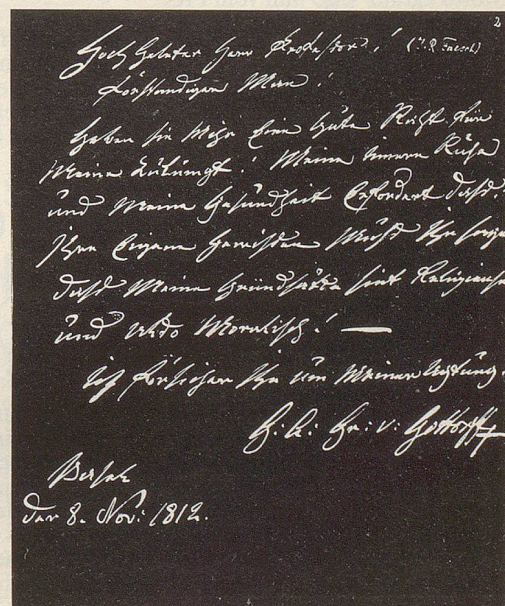 2
Hoch Gelerter Herr Professor! (J. R. Faesch)
Forständigen Man!
Haben sie Mihr Eine Gute Raht für
Meine Zukunft! Meine innere Ruhe
und Meine Gesundheit Erfordert dass.
Ihre Eigene Gewissen Muss Ihn sagen
dass Meine Grundsätze sint Religieuse
und also Moralisch! —
Ich forsichere Ihn um Meiner Achtung.
G: A: Gr: v: Gottorff
Basel
der 8. Nov: 1812.